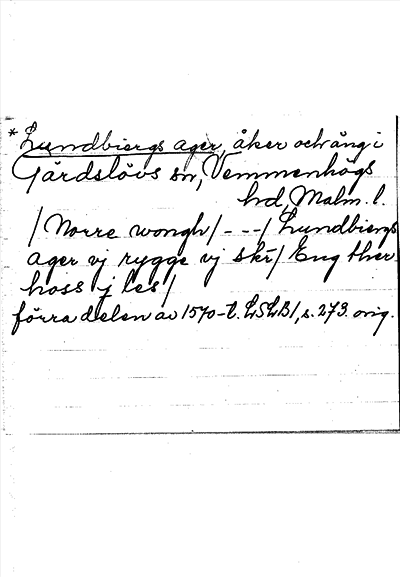 * Lundbiergs ager, åker och äng i
Gärdslövs sn, Vemmenhögs
hd, Malm. l.
/ Norre wongh / - - - / Lundbiergs
ager vj rygge vj skr / Eng ther
hoss j les /
förra delen av 1570-t. LSLB 1, s. 273. orig.